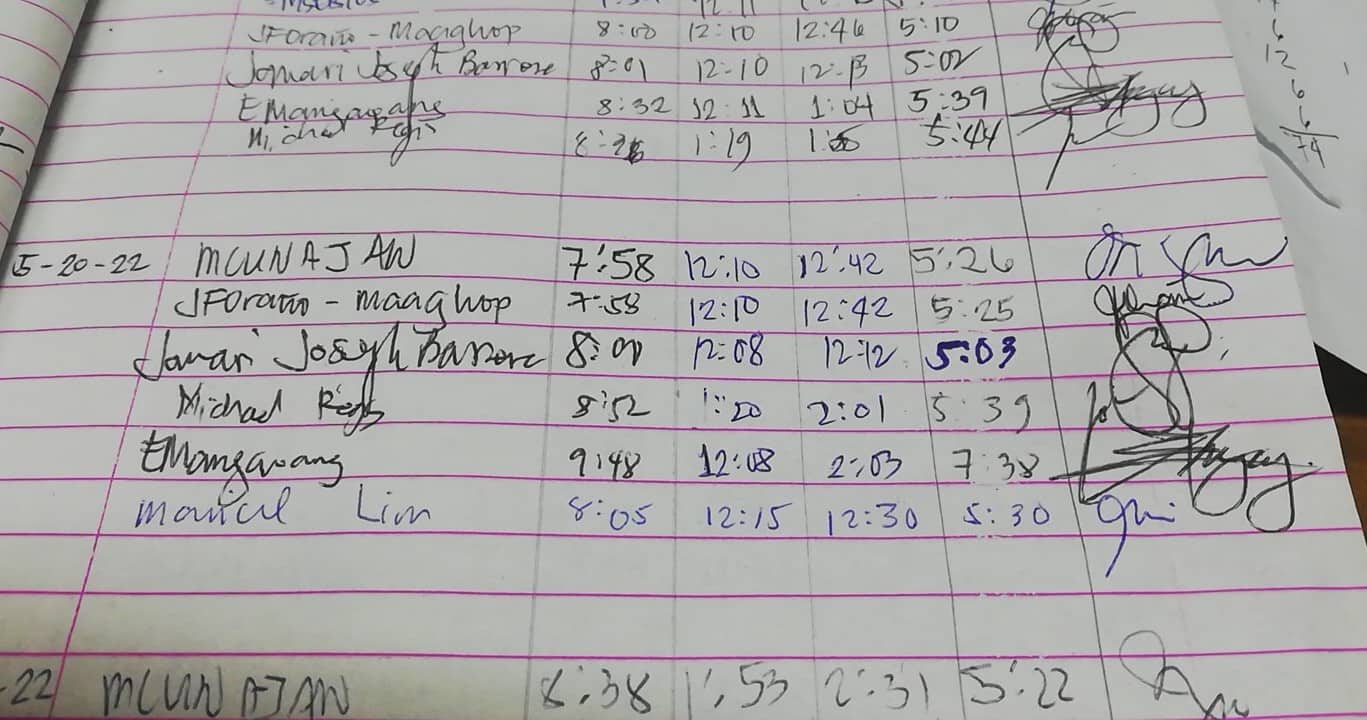 JForaño - Maaghop 8:00 12:10 12:46 5:10
Jomari Joseph Barrore 8:01 12:10 12:13 5:02
EMangawang 8:32 12:11 1:04 5:39
Michael Regis 1:19 5:44
5-20-22 MCUNAJAN 7:58 12:10 12:42 5:26
JForaño - maaghop 7:58 12:10 12:42 5:25
Jomari Joseph Barrore 12:08 12:12 5:03
Michael Regis 8:52 1:20 2:01 5:39
EMangawang 9:48 12:08 2:03 7:38
Lim 8:05 12:15 12:30 5:30
22 MCUNAJAN 8:38 1:53 2:31 5:22
6
12
6
6
74